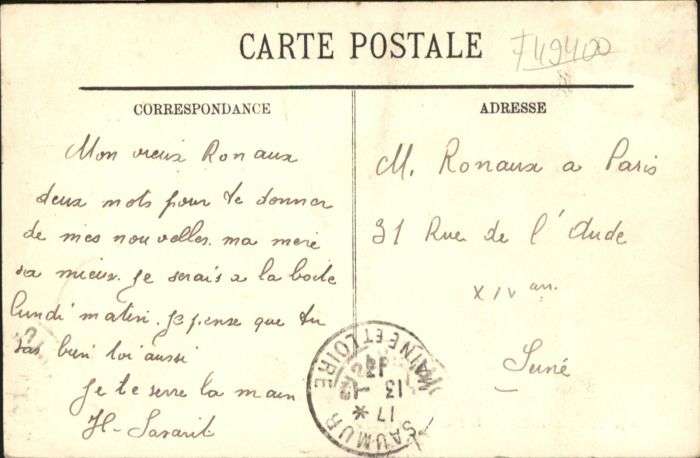 CARTE POSTALE
T49400
CORRESPONDANCE
Mon vieux Ronaux
deux mots pour te donner
de mes nouvelles. ma mere
va mieux. Je serais a la boite
lundi matin. Je pense que tu
vas bien toi aussi
Je te serre la main
ADRESSE
M. Ronaux a Paris
31 Rue de l'Aude
XIV arr.
SAUMUR
MAINE ET LOIRE
17 *
13